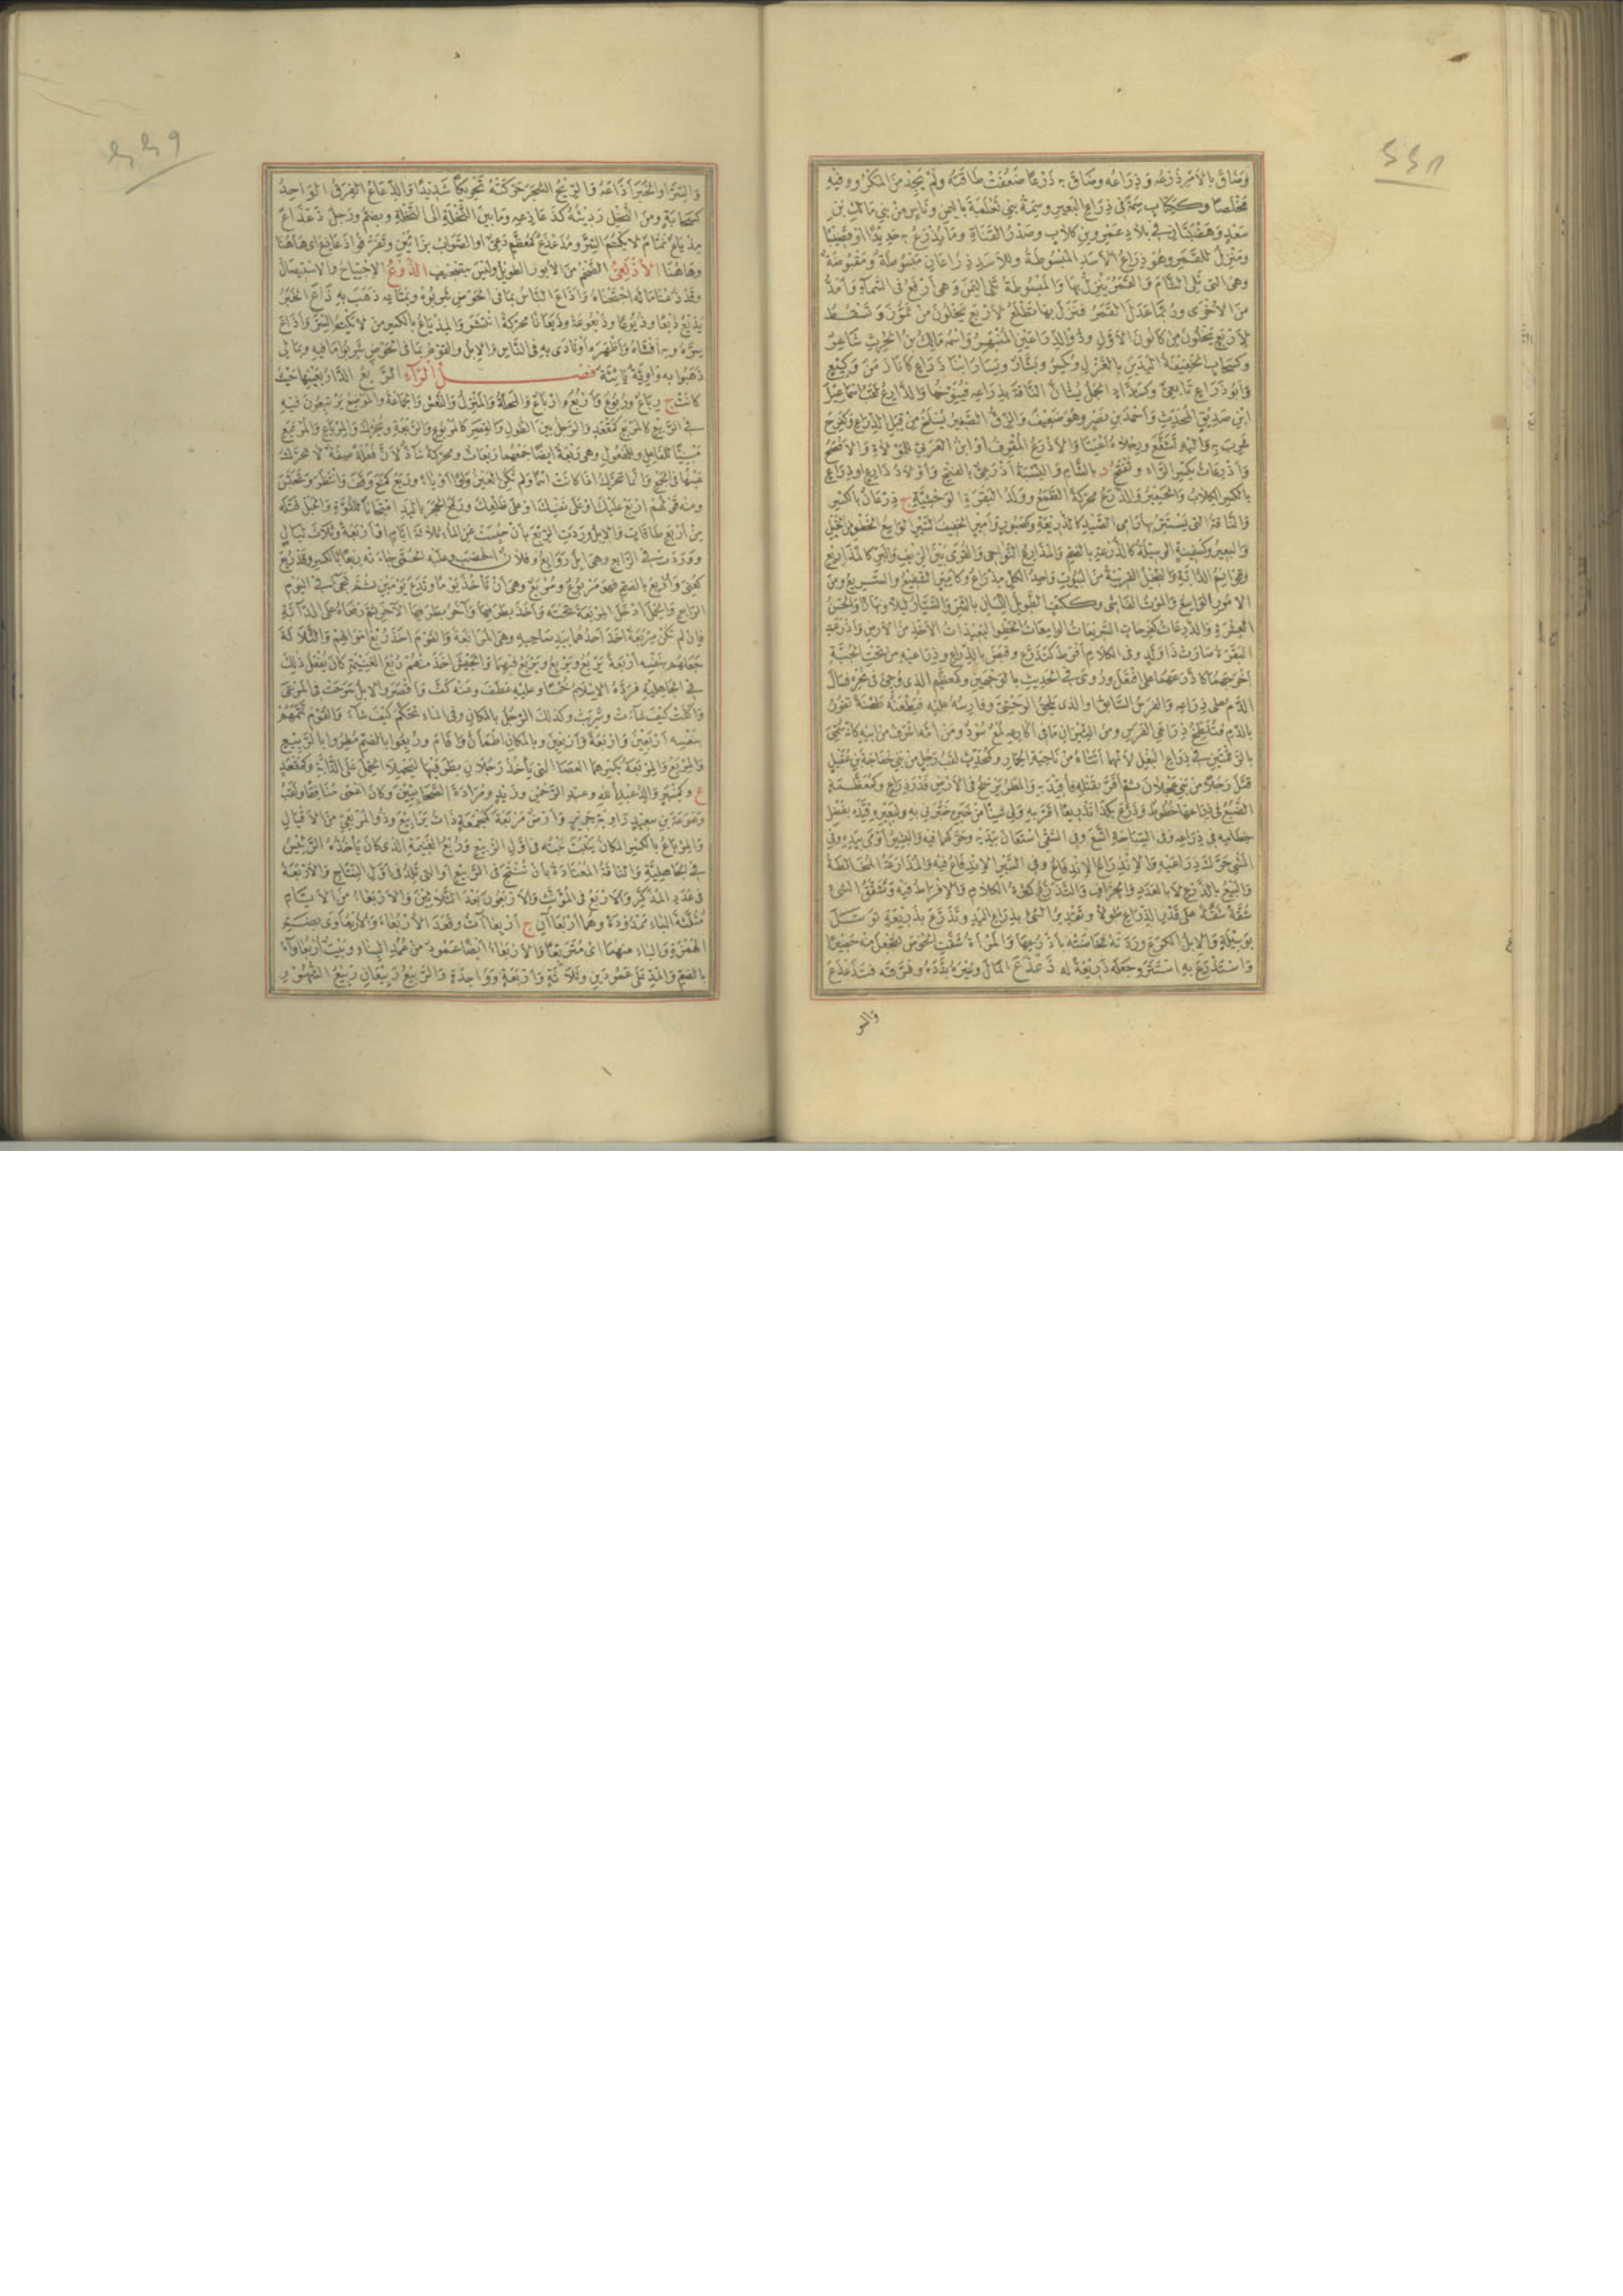 وَضَاقَ بالأمرِ ذَرْعُه وذِرَاعُه وضَاقَ بِه ذَرْعًا ضَعُفَتْ طَاقَتُهُ ولَمْ يَجِدْ مِنَ المَكْرُوهِ فِيهِ
مَخْلَصًا وكَكِتَابٍ سِمَةٌ فى ذِرَاعِ البَعِيرِ وسِمَةُ بني ثَعْلَبَةَ باليَمَنِ ونَاسٍ مِنْ بني مَالِكِ بْنِ
سَعْدٍ وهَضْبَتَانِ في بِلادِ عَمْرِو بنِ كِلابٍ وصَدْرُ القَنَاةِ ومَا يُذْرَعُ بِه حَدِيدًا أوْ قَضِيبًا
ومَنْزِلٌ للقَمَرِ وهُوَ ذِرَاعُ الأسَدِ المَبْسُوطَةُ وللأسَدِ ذِرَاعَانِ مَبْسُوطَةٌ ومَقْبُوضَةٌ
وهى التى تَلِى الشَّأْمَ والقَمَرُ يَنْزِلُ بِهَا والمَبْسُوطَةُ تَلِى اليَمَنَ وهى أرْفَعُ فى السَّمَاءِ وأمَدُّ
مِنَ الأُخْرَى ورُبَّمَا عَدَلَ القَمَرُ فَنَزَلَ بِهَا تَطْلُعُ لأرْبَعٍ يَخْلُونَ مِنْ تَمُّوزَ وتَسْقُطُ
لأرْبَعٍ يَخْلُونَ مِنْ كَانُونَ الأوَّلِ وذُو الذِّرَاعَيْنِ المُنْبَهِرُ واسْمُه مَالِكُ بنُ الحرِثِ شَاعِرٌ
وكسَحَابٍ الخَفِيفَةُ اليَدَيْنِ بالغَزْلِ ويُكْسَرُ وبَشَّارٌ ويَسَارٌ ابْنَا ذَرَاعٍ كَانَا زَمَنَ وَكِيعٍ
وأبُو ذَرَاعٍ تَابِعِىٌّ وكَشَدَّادٍ الجَمَلُ يُسَانُّ النَّاقَةَ بِذِرَاعِه فَيَتَنَوَّخُهَا والذَّارِعُ لَقَبُ إسْمَاعِيلَ
ابْنِ صَدِيقٍ المُحَدِّثِ وأحْمَدَ بنِ نَصْرٍ وهُوَ ضَعِيفٌ والزِّقُّ الصَّغِيرُ يُسْلَخُ مِنْ قِبَلِ الذِّرَاعِ وكَفَرِحَ
شَرِبَ بِه وإلَيْهِ تَشَفَّعَ ورِجْلاهُ أعْيَتَا والأذْرَعُ المُقْرِفُ أوْ ابنُ العَرَبِيِّ للمَوْلاةِ والأفْصَحُ
وأذْرِعَاتُ بكَسْرِ الرَّاءِ وتُفْتَحُ د بالشَّامِ والنِّسْبَةُ أذْرَعِىٌّ بالفَتْحِ وأوْلادُ ذَارِعٍ أوذِرَاعٍ
بالكَسْرِ الكِلابُ والحَمِيرُ والذَّرَعُ مُحَرَّكَةً الطَّمَعُ ووَلَدُ البَقَرَةِ الوَحْشِيَّةِ ج ذِرْعَانٌ بالكَسْرِ
والنَّاقَةُ التى يَسْتَتِرُ بِهَا رَامِى الصَّيْدِ كالذَّرِيعَةِ وكصَبُورٍ وأمِيرٍ الخَفِيفُ السَّيْرِ الوَاسِعُ الخَطْوِ مِنَ الخَيْلِ
والبَعِيرُ وكَسَفِينَةٍ الوَسِيلَةُ كالذُّرْعَةِ بالضَّمِّ والمَذَارِعُ النَّوَاحِى والقُرَى بَيْنَ الرِّيفِ والبَرِّ كالمَذَارِيعِ
وهى قَوَائِمُ الدَّابَّةِ والنَّخِيلُ القَرِيبَةُ مِنَ البُيُوتِ وَاحِدُ الكُلِّ مِذْرَاعٌ وكأمِيرٍ الشَّفِيعُ والسَّرِيعُ ومِنَ
الأُمُورِ الوَاسِعُ والمَوْتُ الفَاشِى وككَتِفٍ الطَّوِيلُ اللِّسَانِ بالشَّرِّ والسَّيَّارُ لَيْلًا ونَهَارًا والحَسَنُ
العِشْرَةِ والذَّرِعَاتُ كفَرِحَاتٍ السَّرِيعَاتُ الوَاسِعَاتُ الخَطْوِ البَعِيدَاتُ الأخْذِ مِنَ الأرْضِ وأذْرَعَتِ
البَقَرَةُ صَارَتْ ذَا وَلَدٍ وفى الكَلامِ أفْرَطَ كتَذَرَّعَ وقَبَضَ بالذِّرَاعِ وذِرَاعَيْهِ مِنْ تَحْتِ الجُبَّةِ
أخْرَجَهُمَا كاذَّرَعَهُمَا على افْتَعَلَ ورُوِىَ في الحَدِيثِ بالوَجْهَيْنِ وكمُعَظَّمٍ الذى وُجِئَ فى نَحْرِه فَسَالَ
الدَّمُ عَلَى ذِرَاعِه والفَرَسُ السَّابِقُ أو الذى يَلْحَقُ الوَحْشِىَّ وفَارِسُهُ عَلَيْهِ فَيَطْعَنُهُ طَعْنَةً تَفُورُ
بالدَّمِ فَتُلَطِّخُ ذِرَاعَىِ الفَرَسِ ومِنَ الثِّيرَانِ مَا فى أكَارِعِه لُمَعٌ سُودٌ ومَنْ أُمُّه أشْرَفُ مِنْ أبِيهِ كأنَّه سُمِّىَ
بالرَّقْمَتَيْنِ في ذِرَاعِ البَغْلِ لأنَّهَا أتَتَاهُ مِنْ نَاحِيَةِ الحِمَارِ وكمُحَدِّثٍ لَقَبُ رَجُلٍ مِنْ بَنِي خَفَاجَةَ بنِ عُقَيْلٍ
قَتَلَ رَجُلًا مِنْ بَنِي عَجْلانَ ثُمَّ أقَرَّ بِقَتْلِه فأُقِيدَ بِه والمَطَرُ يَرْسَخُ فى الأرْضِ قَدْرَ ذِرَاعٍ وكمُعَظَّمَةٍ
الضَّبُعُ فى ذِرَاعِهَا خُطُوطٌ وذَرَّعَ بكَذَا تَذْرِيعًا أقَرَّ بِهِ ولى شَيْئًا مِنْ خَبَرِه خَبَّرَنِى بِهِ ولِبَعِيرِه قَيَّدَه بِفَضْلِ
خِطَامِه فى ذِرَاعِه وفى السِّبَاحَةِ اتَّسَعَ وفى السَّقْىِ اسْتَعَانَ بِيَدَيْه وحَرَّكَهُمَا فِيه والبَشِيرُ أوْمَأَ بِيَدِه وفى
المَشْىِ حَرَّكَ ذِرَاعَيْهِ والانْذِرَاعُ الانْدِفَاعُ وفى السَّيْرِ الانْدِفَاعُ فِيه والمُذَارَعَةُ المُخَالَطَةُ
والبَيْعُ بالذَّرْعِ لا بالعَدَدِ والجُزَافِ والتَّذَرُّعُ كَثْرَةُ الكَلامِ والإفْرَاطُ فِيه وتَشَقُّقُ الشَّىْءِ
شُقَّةً شُقَّةً عَلَى قَدْرِ الذِّرَاعِ طُولًا وتَقْدِيرُ الشَّىْءِ بِذِرَاعِ اليَدِ وتَذَرَّعَ بِذَرِيعَةٍ تَوَسَّلَ
بوَسِيلَةٍ والإبِلُ الكَرَعَ وَرَدَتْهُ فَخَاضَتْهُ بأذْرُعِهَا والمَرْأةُ شَقَّتِ الخُوصَ لِتَجْعَلَ مِنْه حَصِيرًا
واسْتَذْرَعَ بِهِ اسْتَتَرَ وجَعَلَه ذَرِيعَةً لَه ذَعْذَعَ المَالَ وغَيْرَهُ بَدَّدَهُ وفَرَّقَه فَتَذَعْذَعَ
والسر
والسِّرَّ أو الخَبَرَ أذَاعَهُ والرِّيحُ الشَّجَرَ حَرَّكَتْهُ تَحْرِيكًا شَدِيدًا والذَّعَاعُ الفِرَقُ الوَاحِدُ
كسَحَابَةٍ ومِنَ النَّخْلِ رَدِيئُهُ كذَعَاذِعِه ومَا بَيْنَ النَّخْلَةِ إلَى النَّخْلَةِ ويُضَمُّ ورَجُلٌ ذَعْذَاعٌ
مِذْيَاعٌ نَمَّامٌ لا يَكْتُمُ السِّرَّ ومُذَعْذَعٌ كمُعَظَّمٍ دَعِىٌّ أو الصَّوَابُ بِزَاءَيْنِ وتَفَرَّقُوا ذَعَاذِعَ أى هَاهُنَا
وهَاهُنَا الأذْلَعِىُّ الضَّخْمُ مِنَ الأُيُورِ الطَّوِيلُ ولَيْسَ بِتَصْحِيفٍ الذَّوْعُ الاجْتِيَاحُ والاسْتِيصَالُ
وقَدْ ذُعْنَا مَالَه اجْتَحْنَاهُ وأذَاعَ النَّاسُ بِمَا فى الحَوْضِ شَرِبُوهُ وبِمَتَاعِه ذَهَبَ بِهِ ذَاعَ الخَبَرُ
يَذِيعُ ذَيْعًا وذُيُوعًا وذَيْعُوعَةً وذَيَعَانًا مُحَرَّكَةً انْتَشَرَ والمِذْيَاعُ بالكَسْرِ مَنْ لا يَكْتُمُ السِّرَّ وأذَاعَ
سِرَّهُ وبِه أفْشَاهُ وأظْهَرَه أوْ نَادَى بِه فى النَّاسِ والإبِلُ والقَوْمُ بِمَا فى الحَوْضِ شَرِبُوا مَا فِيهِ وبِمَا لِى
ذَهَبُوا بِه وَاوِيَّةٌ يَائِيَّةٌ فَصْلُ الرَّاءِ الرَّبْعُ الدَّارُ بِعَيْنِهَا حَيْثُ
كَانَتْ ج رِبَاعٌ ورُبُوعٌ وأرْبُعٌ وأرْبَاعٌ والمَحَلَّةُ والمَنْزِلُ والنَّعْشُ وجَمَاعَةُ النَّاسِ والمَوْضِعُ يَرْتَبِعُونَ فِيهِ
في الرَّبِيعِ كالمَرْبَعِ كمَقْعَدٍ والرَّجُلُ بَيْنَ الطُّولِ والقِصَرِ كالمَرْبُوعِ والرَّبْعَةِ ويُحَرَّكُ والمِرْبَاعِ والمُرْتَبِعِ
مَبْنِيًّا للفَاعِلِ وللمَفْعُولِ وهى رَبْعَةٌ أيْضًا جَمْعُهُمَا رَبْعَاتٌ ومُحَرَّكَةً شَاذٌّ لأنَّ فَعْلَةً صِفَةً لا تُحَرَّكُ
عَيْنُهَا فى الجَمْعِ وإنَّمَا تُحَرَّكُ إذَا كَانَتْ اسْمًا ولَمْ تَكُنِ العَيْنُ وَاوًا أوْ يَاءً ورَبَعَ كمَنَعَ وَقَفَ وانْتَظَرَ وتَحَبَّسَ
ومِنْه قَوْلُهُمْ ارْبَعْ عَلَيْكَ أوْ عَلَى نَفْسِكَ أوْ عَلَى ظَلْعِكَ ورَفَعَ الحَجَرَ باليَدِ امْتِحَانًا للقُوَّةِ والحَبْلَ فَتَلَه
مِنْ أرْبَعِ طَاقَاتٍ والإبِلُ وَرَدَتِ الرِّبْعَ بأنْ حُبِسَتْ عَنِ المَاءِ ثَلاثَةَ أيَّامٍ أوْ أرْبَعَةً أوْ ثَلاثَ لَيَالٍ
ووَرَدَتْ فى الرَّابِعِ وهى إبِلٌ رَوَابِعُ وفُلانٌ أخْصَبَ وعَلَيْه الحُمَّى جَاءَتْهُ رِبْعًا بالكَسْرِ وقَدْ رُبِعَ
كعُنِىَ وأُرْبِعَ بالضَّمِّ فهو مَرْبُوعٌ ومُرْبَعٌ وهى أنْ تَأْخُذَ يَوْمًا وتَدَعَ يَوْمَيْنِ ثُمَّ تَجِىءَ فى اليَوْمِ
الرَّابِعِ والحِمْلَ أدْخَلَ المِرْبَعَةَ تَحْتَه وأخَذَ بِطَرَفِهَا وآخَرُ بِطَرَفِهَا الآخَرِ ثُمَّ رَفَعَاهُ عَلَى الدَّابَّةِ
فإنْ لَمْ تَكُنْ مِرْبَعَةٌ أخَذَ أحَدُهُمَا بِيَدِ صَاحِبِه وهى المُرَابَعَةُ والقَوْمَ أخَذَ رُبْعَ أمْوَالِهِمْ والثَّلاثَةَ
جَعَلَهُمْ بِنَفْسِه أرْبَعَةً يَرْبَعُ ويَرْبِعُ ويَرْبُعُ فِيهِمَا والجَيْشَ أخَذَ مِنْهُمْ رُبْعَ الغَنِيمَةِ كَانَ يُفْعَلُ ذَلِكَ
فى الجَاهِلِيَّةِ فَرَدَّهُ الإسْلامُ خُمْسًا وعَلَيْهِ عَطَفَ وعَنْه كَفَّ وأقْصَرَ والإبِلُ سَرَحَتْ فى المَرْعَى
وأكَلَتْ كَيْفَ شَاءَتْ وشَرِبَتْ وكَذَلِكَ الرَّجُلُ بالمَكَانِ وفى المَاءِ تَحَكَّمَ كَيْفَ شَاءَ والقَوْمَ تَمَّمَهُمْ
بِنَفْسِه أرْبَعِينَ وأرْبَعَةً وأرْبَعِينَ وبالمَكَانِ اطْمَأنَّ وأقَامَ ورُبِعُوا بالضَّمِّ مُطِرُوا بالرَّبِيعِ
والمِرْبَعُ والمِرْبَعَةُ بكَسْرِهِمَا العَصَا التى يَأْخُذُ رَجُلانِ بِطَرَفَيْهَا لِيَحْمِلا الحِمْلَ عَلَى الدَّابَّةِ وكمَقْعَدٍ
ع وكمِنْبَرٍ وَالِدُ عَبْدِ اللهِ وعَبْدِ الرَّحْمَنِ وزَيْدٍ ومُرَارَةَ الصَّحَابِيِّينَ وكَانَ أعْمَى مُنَافِقًا ولَقَبُ
وَعْوَعَةَ بنِ سَعِيدٍ رَاوِيَةِ جَرِيرٍ وأرْضٌ مَرْبَعَةٌ كمَجْمَعَةٍ ذَاتُ يَرَابِيعَ وذُو المَرْبَعِيِّ مِنَ الأقْيَالِ
والمِرْبَاعُ بالكَسْرِ المَكَانُ يَنْبُتُ نَبْتُه فى أوَّلِ الرَّبِيعِ ورُبْعُ الغَنِيمَةِ الذى كَانَ يَأْخُذُهُ الرَّئِيسُ
فى الجَاهِلِيَّةِ والنَّاقَةُ المُعْتَادَةُ بأنْ تُنْتَجَ فى الرَّبِيعِ أو التى تَلِدُ فى أوَّلِ النِّتَاجِ والأرْبَعَةُ
فى عَدَدِ المُذَكَّرِ والأرْبَعُ فى المُؤَنَّثِ والأرْبَعُونَ بَعْدَ الثَّلاثِينَ والأرْبِعَاءُ مِنَ الأيَّامِ
مُثَلَّثَةَ البَاءِ مَمْدُودَةً وهُمَا أرْبِعَاآنِ ج أرْبِعَاآتٌ وقَعَدَ الأرْبُعَاءَ والأرْبُعَاوَى بِضَمِّ
الهَمْزَةِ والبَاءِ مِنْهُمَا أى مُتَرَبِّعًا والأُرْبُعَاءُ أيْضًا عَمُودٌ مِنْ عُمُدِ البِنَاءِ وبَيْتٌ أُرْبُعَاوَاءُ
بالضَّمِّ والمَدِّ عَلَى عَمُودَيْنِ وثَلاثَةٍ وأرْبَعَةٍ ووَاحِدَةٍ والرَّبِيعُ رَبِيعَانِ رَبِيعُ الشُّهُورِ